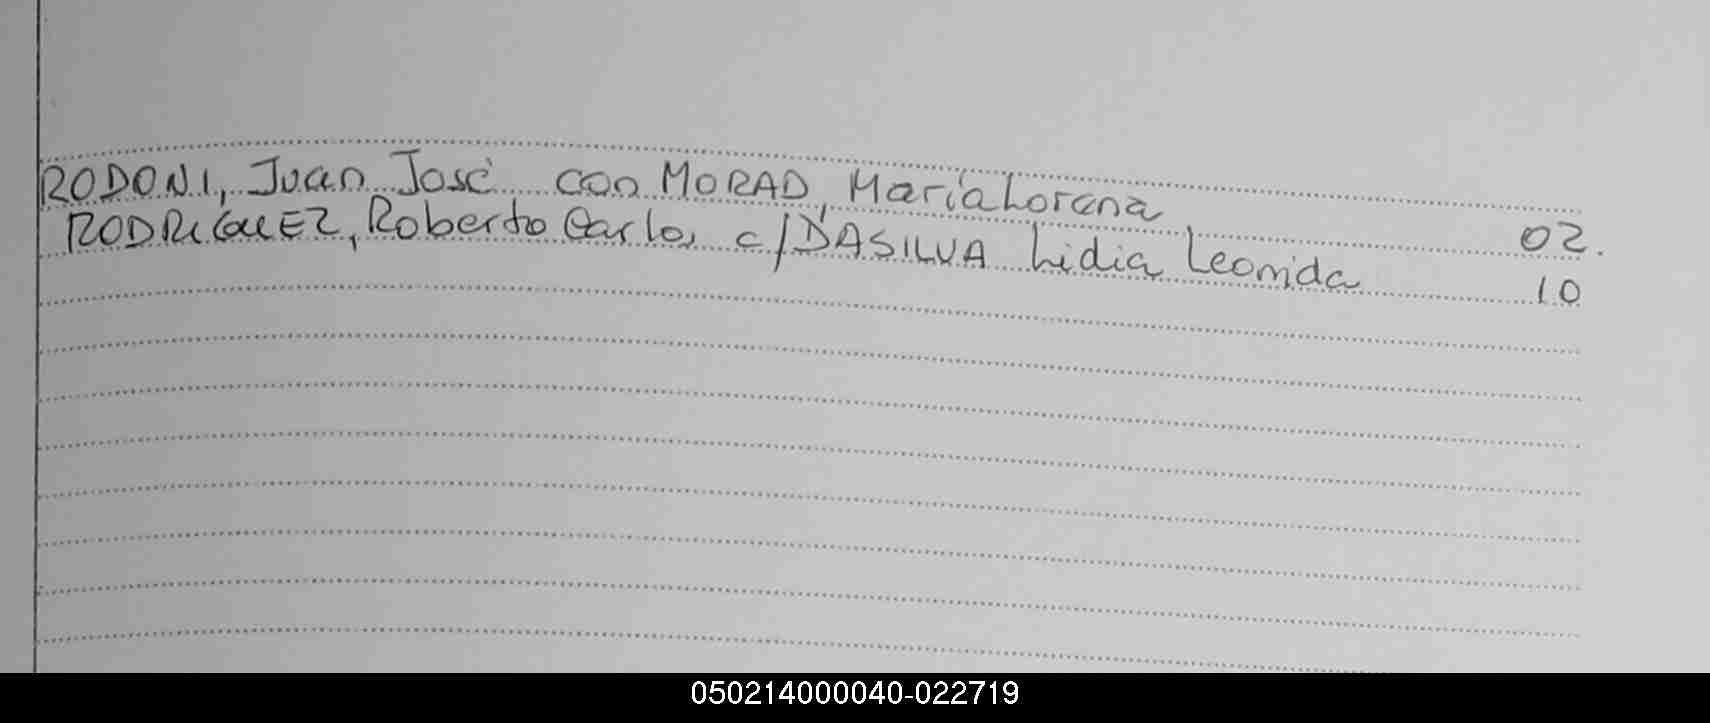 RODONI, Juan José con MORAD, María Lorena 02.
RODRIGUEZ, Roberto Carlos c/ D'ASILVA Lidia Leonida 10
050214000040-022719